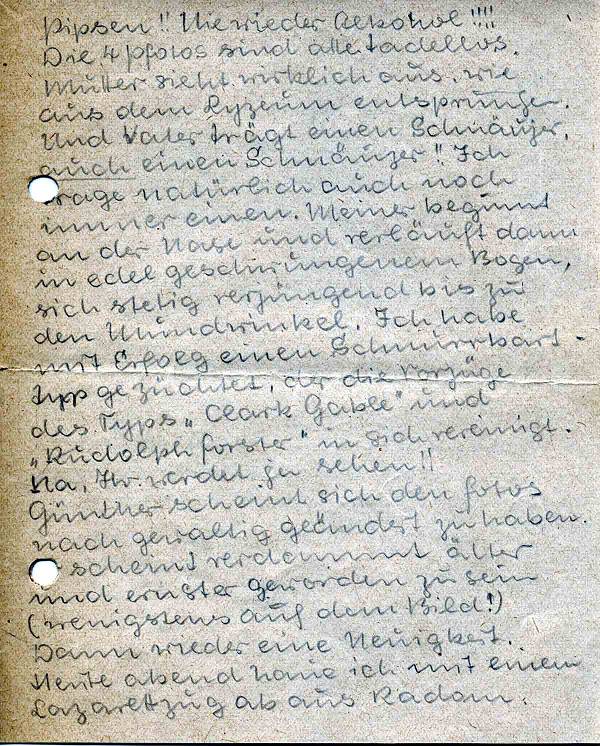 Pipsen!! Nie wieder Alkohol!!!!
Die 4 Pfotos sind alle tadellos.
Mutter sieht wirklich aus, wie
aus dem Lyzeum entsprungen.
Und Vater trägt einen Schnäuzer,
auch einen Schnäuzer!! Ich
trage natürlich auch noch
immer einen. Meiner beginnt
an der Nase und verläuft dann
in edel geschwungenem Bogen,
sich stetig verjüngend bis zu
den Mundwinkel. Ich habe
mit Erfolg einen Schnurrbart-
typ gezüchtet, der die Vorzüge
des Typs „Clark Gable" und
„Rudolph Forster" in sich vereinigt.
Na, Ihr werdet ja sehen!!
Günther scheint sich den Fotos
nach gewaltig geändert zu haben.
scheint verdammt älter
und ernster geworden zu sein
(wenigstens auf dem Bild!)
Dann wieder eine Neuigkeit.
Heute abend haue ich mit einem
Lazarettzug ab aus Radom.